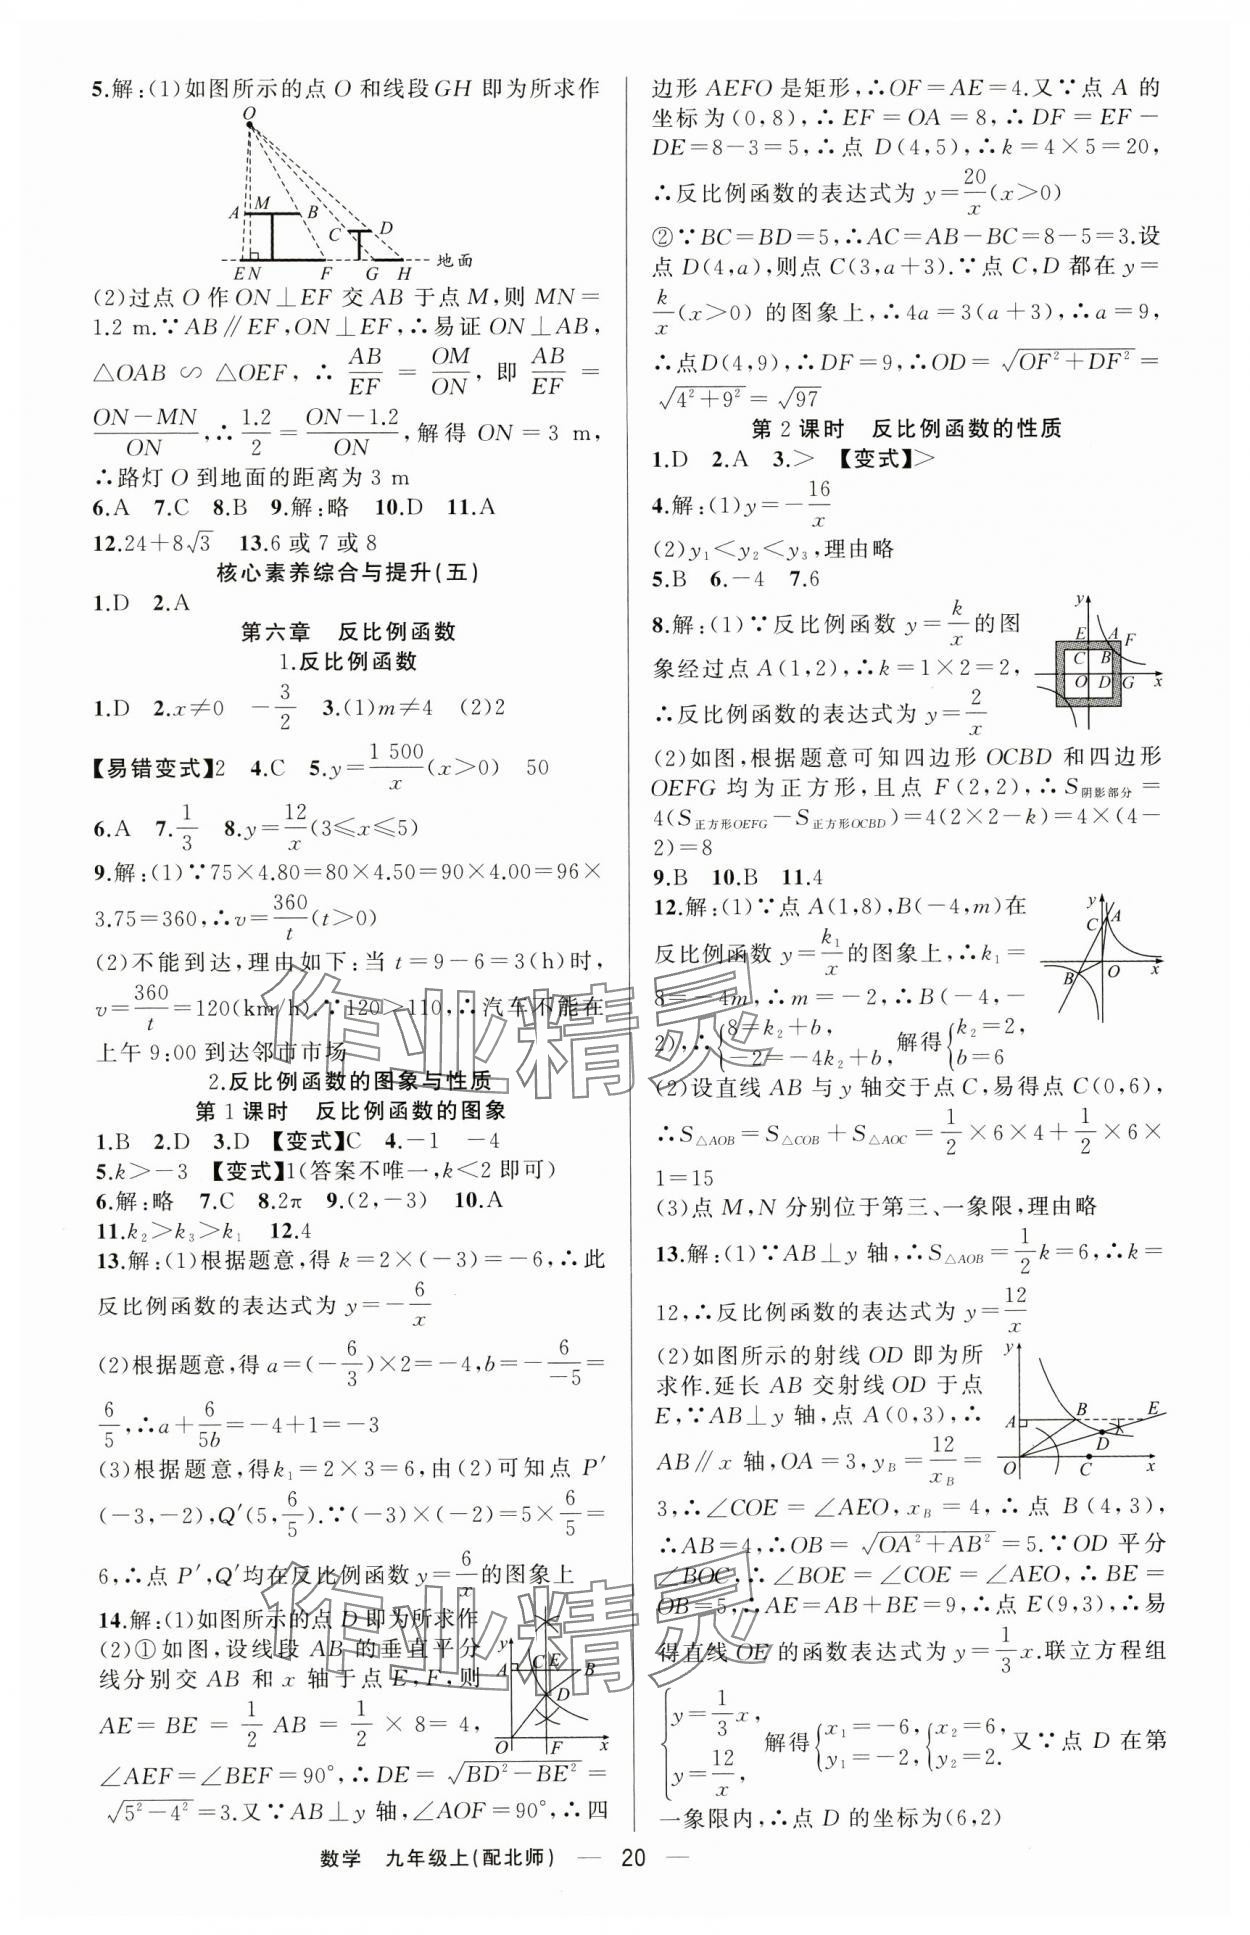 5.解:(1)如图所示的点 O 和线段 GH 即为所求作
O
A M B
C D
E N F G H 地面
(2)过点 O 作 ON⊥EF 交 AB 于点 M,则 MN=
1.2 m.∵AB∥EF,ON⊥EF,∴易证 ON⊥AB,
△OAB ∽ △OEF, ∴ AB/EF = OM/ON, 即 AB/EF =
(ON-MN)/ON,∴1.2/2=(ON-1.2)/ON,解得 ON=3 m,
∴路灯 O 到地面的距离为 3 m
6.A 7.C 8.B 9.解:略 10.D 11.A
12.24+8√3 13.6 或 7 或 8
核心素养综合与提升(五)
1.D 2.A
第六章 反比例函数
1.反比例函数
1.D 2.x≠0 -3/2 3.(1)m≠4 (2)2
【易错变式】2 4.C 5.y=1 500/x(x>0) 50
6.A 7.1/3 8.y=12/x(3≤x≤5)
9.解:(1)∵75×4.80=80×4.50=90×4.00=96×
3.75=360,∴v=360/t(t>0)
(2)不能到达,理由如下:当 t=9-6=3(h)时,
v=360/t=120(km/h).∵120>110,∴汽车不能在
上午 9:00 到达邻市市场
2.反比例函数的图象与性质
第 1 课时 反比例函数的图象
1.B 2.D 3.D 【变式】C 4.-1 -4
5.k>-3 【变式】1(答案不唯一,k<2 即可)
6.解:略 7.C 8.2π 9.(2,-3) 10.A
11.k₂>k₃>k₁ 12.4
13.解:(1)根据题意,得 k=2×(-3)=-6,∴此
反比例函数的表达式为 y=-6/x
(2)根据题意,得 a=(-6/3)×2=-4,b=-6/-5=
6/5,∴a+6/5b=-4+1=-3
(3)根据题意,得k₁=2×3=6,由(2)可知点 P′
(-3,-2),Q′(5,6/5).∵(-3)×(-2)=5×6/5=
6,∴点 P′,Q′均在反比例函数 y=6/x的图象上
14.解:(1)如图所示的点 D 即为所求作
(2)①如图,设线段 AB 的垂直平分
线分别交 AB 和 x 轴于点 E,F,则
AE= BE = 1/2 AB = 1/2 × 8= 4,
y A C E B D O F x
∠AEF=∠BEF=90°,∴DE= √(BD²-BE²) =
√(5²-4²)=3.又∵AB⊥y 轴,∠AOF=90°,∴四
边形 AEFO 是矩形,∴OF=AE=4.又∵点 A 的
坐标为(0,8),∴EF=OA=8,∴DF=EF-
DE=8-3=5,∴点 D(4,5),∴k=4×5=20,
∴反比例函数的表达式为 y=20/x(x>0)
②∵BC=BD=5,∴AC=AB-BC=8-5=3.设
点 D(4,a),则点 C(3,a+3).∵点 C,D 都在 y=
k/x(x>0) 的图象上,∴4a=3(a+3),∴a=9,
∴点D(4,9),∴DF=9,∴OD= √(OF²+DF²) =
√(4²+9²)=√97
第 2 课时 反比例函数的性质
1.D 2.A 3.> 【变式】>
4.解:(1)y=-16/x
(2)y₁<y₂<y₃,理由略
5.B 6.-4 7.6
8.解:(1)∵反比例函数 y=k/x的图
象经过点 A(1,2),∴k=1×2=2,
∴反比例函数的表达式为 y=2/x
y E A F C B O D G x
(2)如图,根据题意可知四边形 OCBD 和四边形
OEFG 均为正方形,且点 F(2,2),∴S阴影部分=
4(S正方形OEFG-S正方形OCBD)=4(2×2-k)=4×(4-
2)=8
9.B 10.B 11.4
12.解:(1)∵点 A(1,8),B(-4,m)在
反比例函数 y=k₁/x的图象上,∴k₁=
8=-4m,∴m=-2,∴B(-4,-
y C A B O x
2),∴{8=k₂+b, -2=-4k₂+b, 解得{k₂=2, b=6
(2)设直线 AB 与 y 轴交于点 C,易得点 C(0,6),
∴S△AOB=S△COB+S△AOC=1/2×6×4+1/2×6×
1=15
(3)点 M,N 分别位于第三、一象限,理由略
13.解:(1)∵AB⊥y 轴,∴S△AOB=1/2k=6,∴k=
12,∴反比例函数的表达式为 y=12/x
(2)如图所示的射线 OD 即为所
求作.延长 AB 交射线 OD 于点
E,∵AB⊥y 轴,点 A(0,3),∴
AB∥x 轴,OA=3,y_B=12/x_B=
y A B E D O C x
3,∴∠COE=∠AEO,x_B=4,∴点 B(4,3),
∴AB=4,∴OB= √(OA²+AB²)=5.∵OD 平分
∠BOC,∴∠BOE=∠COE=∠AEO,∴BE=
OB=5,∴AE=AB+BE=9,∴点 E(9,3),∴易
得直线 OE 的函数表达式为 y=1/3x.联立方程组
{y=1/3x, y=12/x, 解得{x₁=-6, y₁=-2, {x₂=6, y₂=2. 又∵点 D 在第
一象限内,∴点 D 的坐标为(6,2)
数学 九年级上(配北师) — 20 —
作业精灵
作业精灵